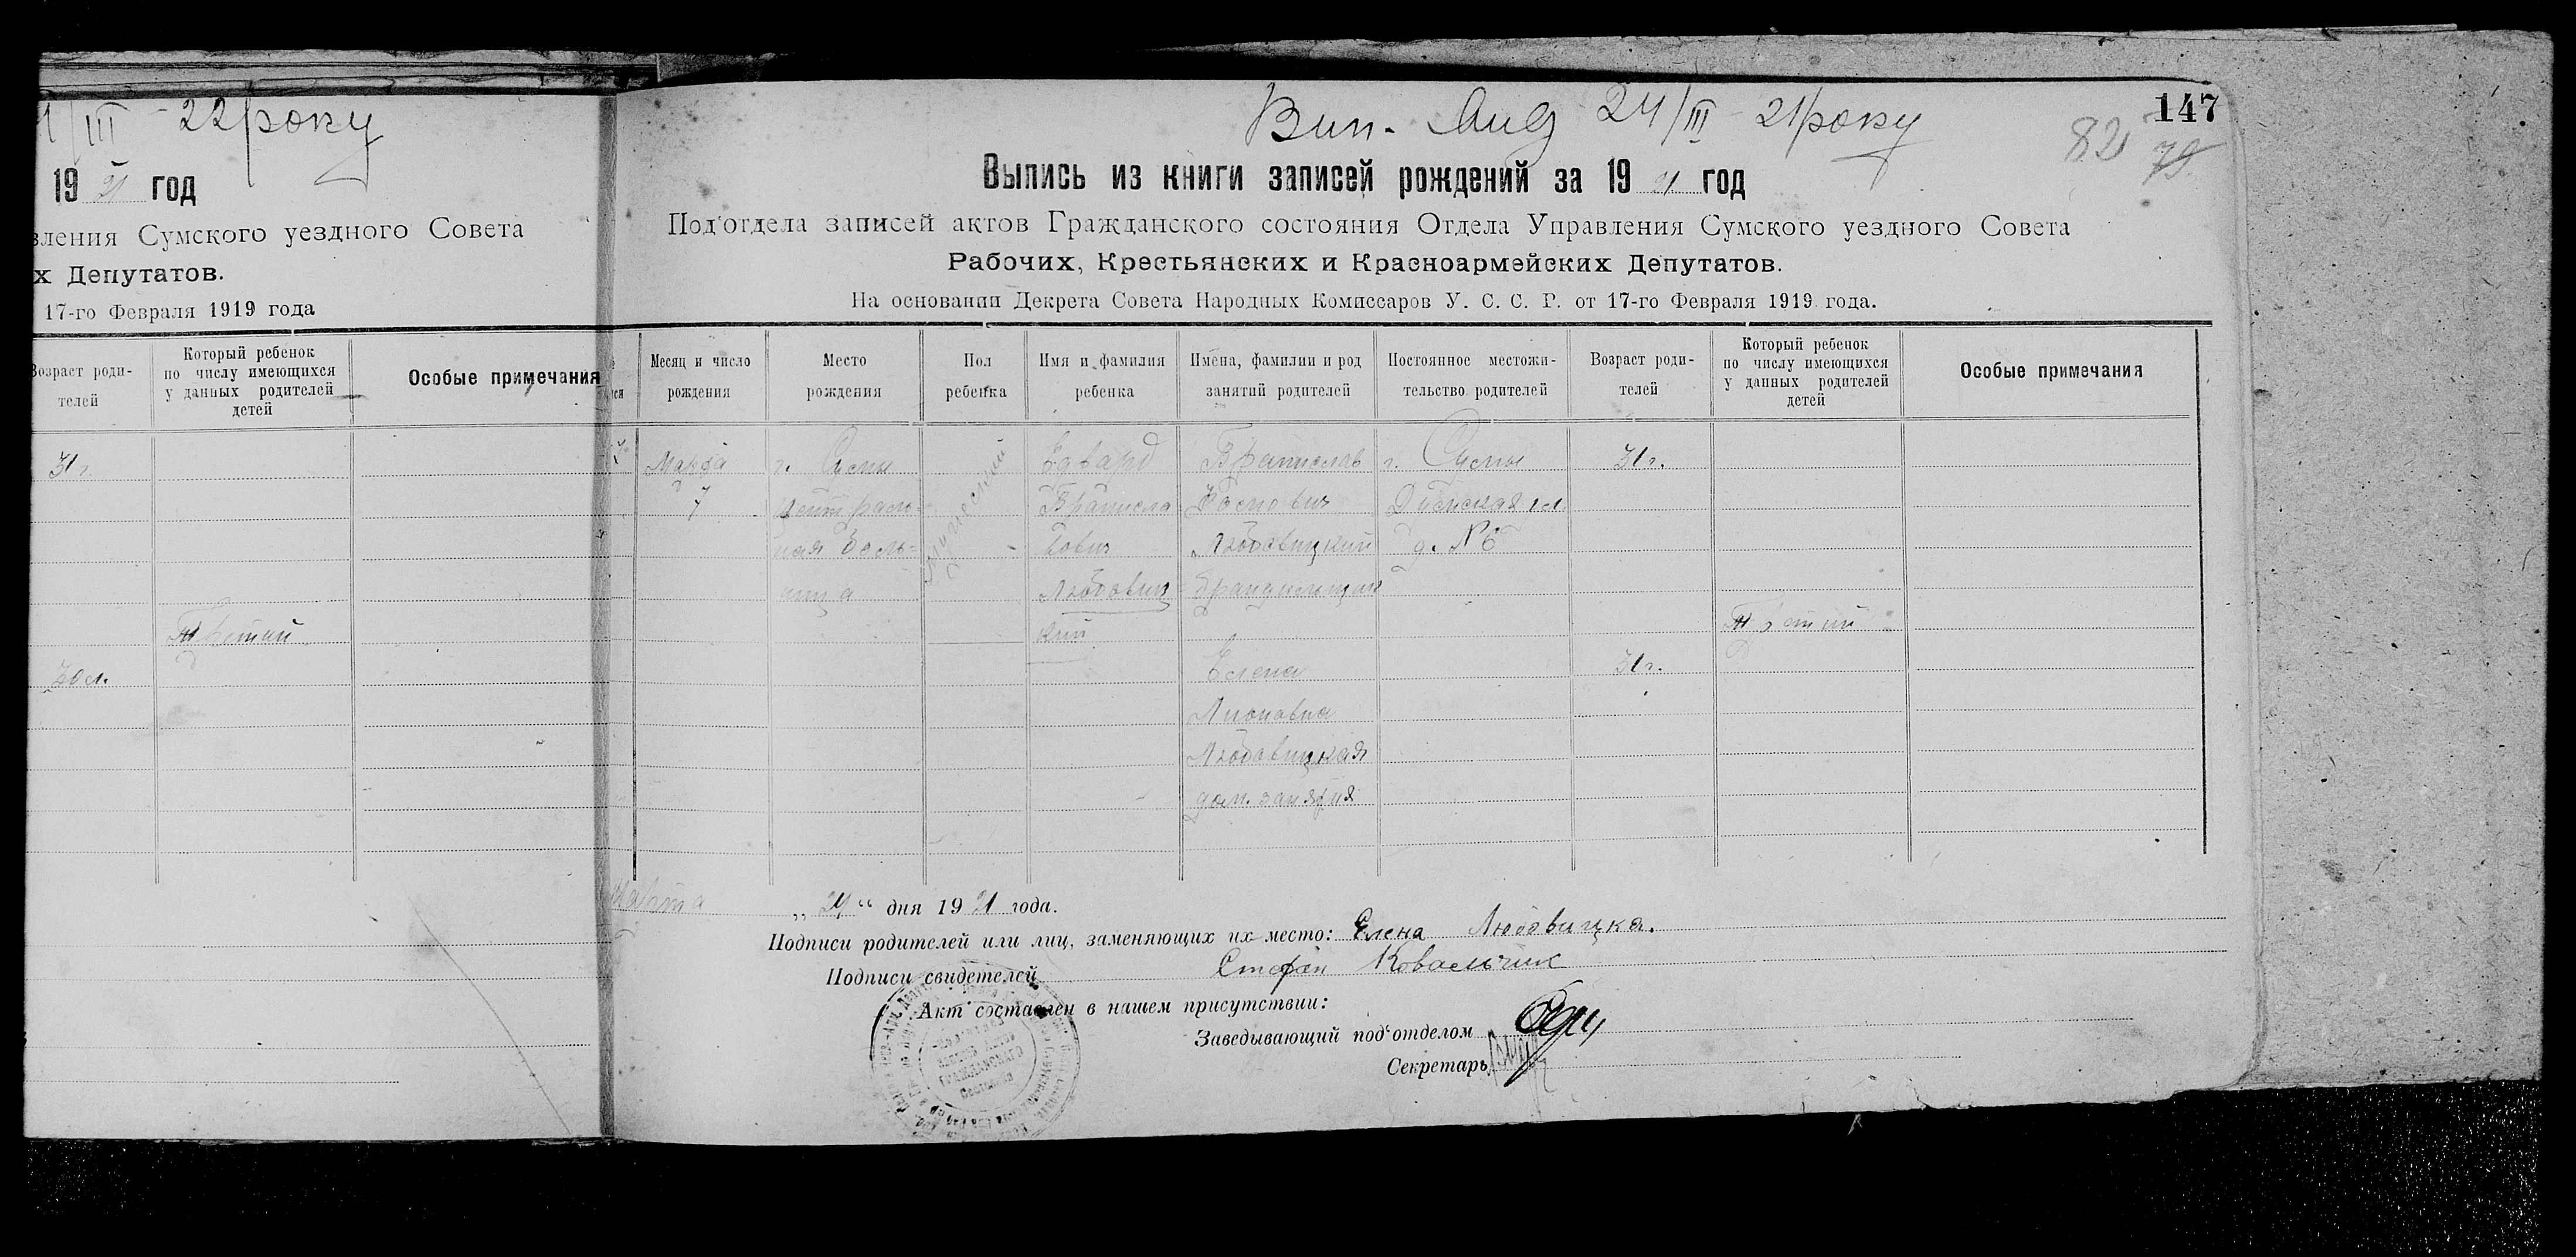 /III - 22 року
19 21 год
вления Сумского уездного Совета
х Депутатов.
17-го Февраля 1919 года
Возраст роди-
телей
Который ребенок
по числу имеющихся
у данных родителей
детей
Особые примечания
31 г.
Третий
30 л.
147
Вип. 24/III - 21 року
82 79
Выпись из книги записей рождений за 19 21 год
Под'отдела записей актов Гражданского состояния Отдела Управления Сумского уездного Совета
Рабочих, Крестьянских и Красноармейских Депутатов.
На основании Декрета Совета Народных Комиссаров У. С. С. Р. от 17-го Февраля 1919 года.
Месяц и число
рождения
Место
рождения
Пол
ребенка
Имя и фамилия
ребенка
Имена, фамилии и род
занятий родителей
Постоянное местожи-
тельство родителей
Возраст роди-
телей
Который ребенок
по числу имеющихся
у данных родителей
детей
Особые примечания
Марта
7
г. Сумы
Централь-
ная Боль-
ница
мужеский
Едвард
Брониславович
Любовиц
кий
Бронислав
Любовицкий
Елена
Любовицкая
дом. занятия
г. Сумы
д. № 6
31 г.
31 г.
Третий
Марта „24“ дня 19 21 года.
Подписи родителей или лиц, заменяющих их место: Елена Любовицка.
Подписи свидетелей Стефан Ковальчик
Акт составлен в нашем присутствии:
Заведывающий под'отделом
Секретарь